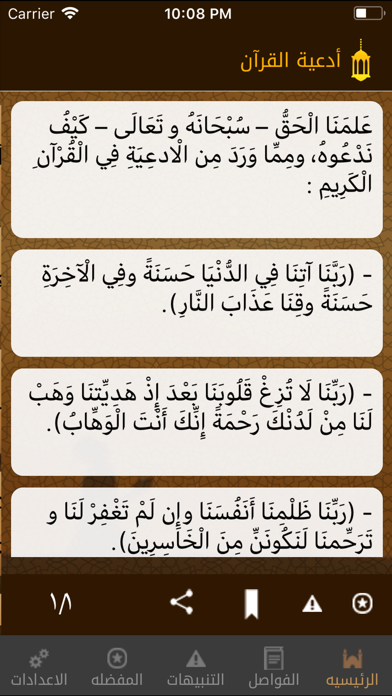 Carrier 10:08 PM
أدعية القرآن
عَلمَنَا الْحَقُّ – سُبْحَانَهُ و تَعَالَى – كَيْفُ
نَدْعُوهُ، ومِمِّا وَرَدَ مِن الْادعِيَةِ فِي الْقُرْآنِ
الْكَرِيمِ :
- (رَبَّنَا آتِنَا فِي الدُّنْيَا حَسَنَةً وفِي الْآخِرَةِ
حَسَنَةً وقِنَا عَذَابَ النَّارِ).
- (رَبِّنَا لَا تُزِغْ قَلُوبَنَا بَعْدَ إِذْ هَدِيِّتنَا وَهَبْ
لَنَا مِنْ لَدُنْكَ رَحْمَةً إِنَّكَ أَنْتَ الْوَهِّابُ).
- (رَبِّنَا ظَلْمِنَا أَنْفُسَنَا وإِن لَمْ تَغْفِرْ لَنَا و
تَرَحِّمنَا لَنَكُونَنِّ مِنَ الْخَاسِرِينَ).
١/٨
الرئيسيه
الفواصل
التنبيهات
المفضله
الاعدادات